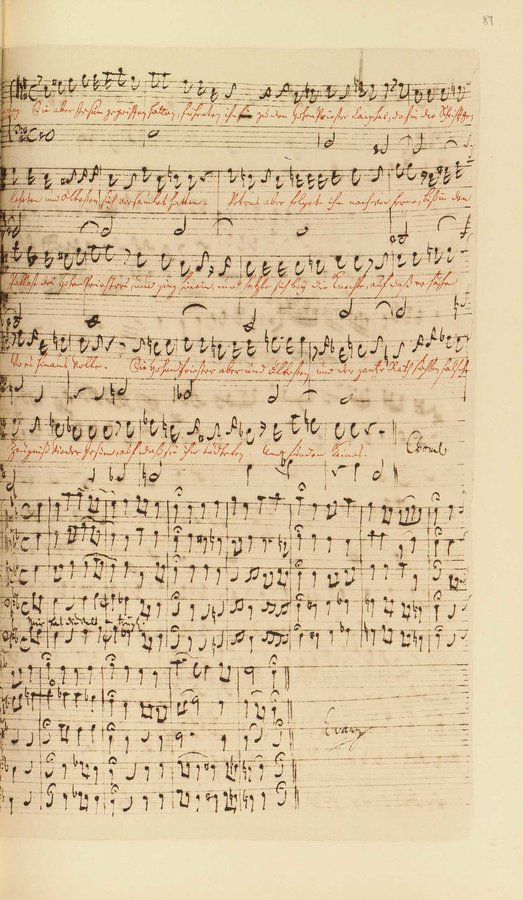 87
Evang. Die aber Jesum gegriffen hatten, führeten ihn zu dem Hohenpriester Caiphas, dahin die Schrifftge-
lehrten und Ältesten sich versamlet hatten. Petrus aber folgete ihm nach von ferne, biß in den
Pallast des Hohenpriesters, und ging hinein, und satzte sich bey die Knechte, auf daß er sähe
wo es hinaus wolte. Die Hohenpriester aber und Ältesten, und der gantze Rath suchten falsche
Zeugniß wieder Jesum, auf daß sie ihn tödteten und funden keines. Choral
Mir hat die Welt trügl.
Evang